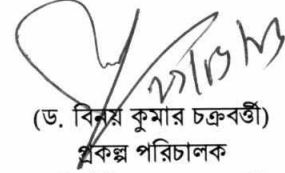 (ড. বিনয় কুমার চক্রবর্ত্তী)
প্রকল্প পরিচালক